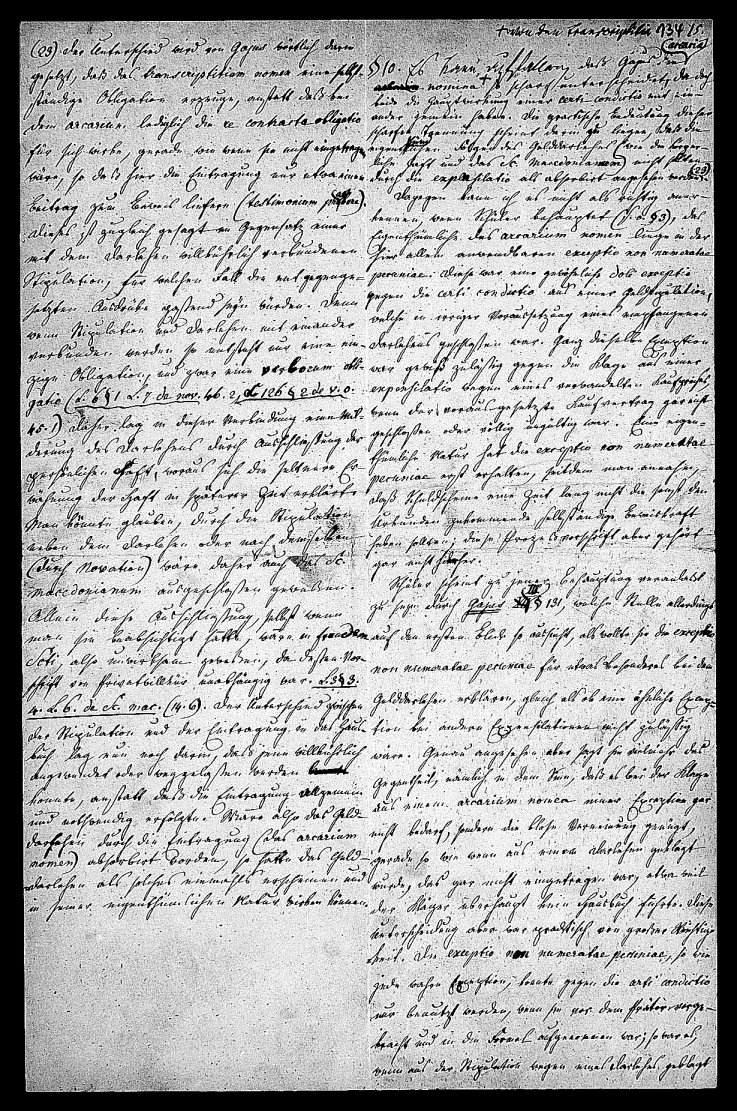 + von den transcriptitia 134 15.
(23) Der Unterschied wird von Gajus wörtlich darin
gesetzt, daß das transcriptitium nomen eine selbst-
ständige Obligation erzeuge, anstatt daß bei
dem arcarium lediglich die re contracta obligatio
für sich wirke, gerade wie wenn sie nicht eingetragen
wäre, so daß hier die Eintragung nur etwa einen
Beitrag zum Beweis liefern (testimonium
Dieses ist zugleich gesagt im Gegensatz einer
mit dem Darlehen willkührlich verbundenen
Stipulation, für welchen Fall die entgegenge-
setzten Ausdrücke passend seyn würden. Denn
wenn Stipulation und Darlehen mit einander
verbunden werden so entsteht nur eine ein-
zige Obligation, und zwar eine verborum obli-
gatio (L. 6 § 1 L. 7 de nov. 46. 2, L. 126 § 2 de v. o.
45. 1) Daher lag in dieser Verbindung eine Mil-
derung des Darlehens durch Ausschließung der
persönlichen Haft, woraus sich die seltnere Er-
wähnung der Haft in späterer Zeit erklärt.
Man könnte glauben, durch die Stipulation
neben dem Darlehen oder nach demselben
(durch Novation) wäre daher auch das Sc.
macedonianum ausgeschlossen gewesen.
Allein diese Ausschließung, selbst wenn
man sie beabsichtigt hätte, wäre in fraudem
Scti, also unwirksam gewesen, da dessen Vor-
schrift von Privatwillkür unabhängig war. L. 3 § 3.
4. L. 6. de Sc. mac. (14. 6). Der Unterschied zwischen
der Stipulation und der Eintragung in das Haus-
buch lag nun noch darin, daß jene willkührlich
angewendet oder weggelassen werden
konnte, anstatt daß die Eintragung allgemein
und nothwendig erfolgte. Wäre also das Geld-
darlehen durch die Eintragung (das arcarium
nomen) absorbirt worden, so hätte das Geld-
darlehen als solches niemahls erscheinen und
in seiner eigenthümlichen Natur wirken können.
§ 10. Es kann auffallen daß Gajus die arcaria
nomina + so scharf unterscheidet, da doch
beide die Hauptwirkung einer certi condictio mit ein-
ander gemein haben. Die praktische Bedeutung dieser
scharfen Trennung scheint darin zu liegen, daß die
eigenthümlichen Folgen des Gelddarlehens wie die persön-
liche Haft und das Sc. Macedonianum nicht sollten
durch die expensilatio als absorbirt angesehen werden. (23)
Dagegen kann ich es nicht als richtig aner-
kennen wenn Schüler behauptet (S. o. § 3), das
Eigenthümliche des arcarium nomen liege in der
hier allein anwendbaren exceptio non numeratae
pecuniae. Diese war eine gewöhnliche doli exceptio
gegen die certi condictio aus einer Geldstipulation,
welche in irriger Voraussetzung eines empfangenen
Darlehens geschlossen war. Ganz dieselbe Exception
war gewiß zulässig gegen die Klage aus einer
expensilatio wegen eines verwandelten Kaufpreises,
wenn der vorausgesetzte Kaufvertrag gar nicht
geschlossen oder völlig ungültig war. Eine eigen-
thümliche Natur hat die exceptio non numeratae
pecuniae erst erhalten, seitdem man annahm,
daß Schuldscheine eine Zeit lang nicht die sonst den
Urkunden zukommende selbständige Beweiskraft
haben sollten; diese Prozeßvorschrift aber gehört
gar nicht hierher.
Schüler scheint zu jener Behauptung veranlaßt
zu seyn durch Gajus III § 131, welche Stelle allerdings
auf den ersten Blick so aussieht, als wollte sie die exceptio
non numeratae pecuniae für etwas besonderes bei dem
Gelddarlehen erklären, gleich als ob eine ähnliche Excep-
tion bei andern Expensilationen nicht zulässig
wäre. Genau angesehen aber sagt sie vielmehr das
Gegentheil, nämlich in dem Sinn, daß es bei der Klage
aus einem arcarium nomen einer Exception gar
nicht bedarf, sondern die bloße Verneinung genügt,
gerade so wie wenn aus einem Darlehen geklagt
würde, das gar nicht eingetragen war, etwa weil
der Kläger überhaupt kein Hausbuch führte. Diese
Unterscheidung aber war praktisch von großer Wichtig-
keit. Die exceptio non numeratae pecuniae, so wie
jede wahre Exception, konnte gegen die certi condictio
nur benutzt werden, wenn sie vor dem Prätor vorge-
bracht und in die Formel aufgenommen war; so war es,
wenn aus der Stipulation wegen eines Darlehens geklagt